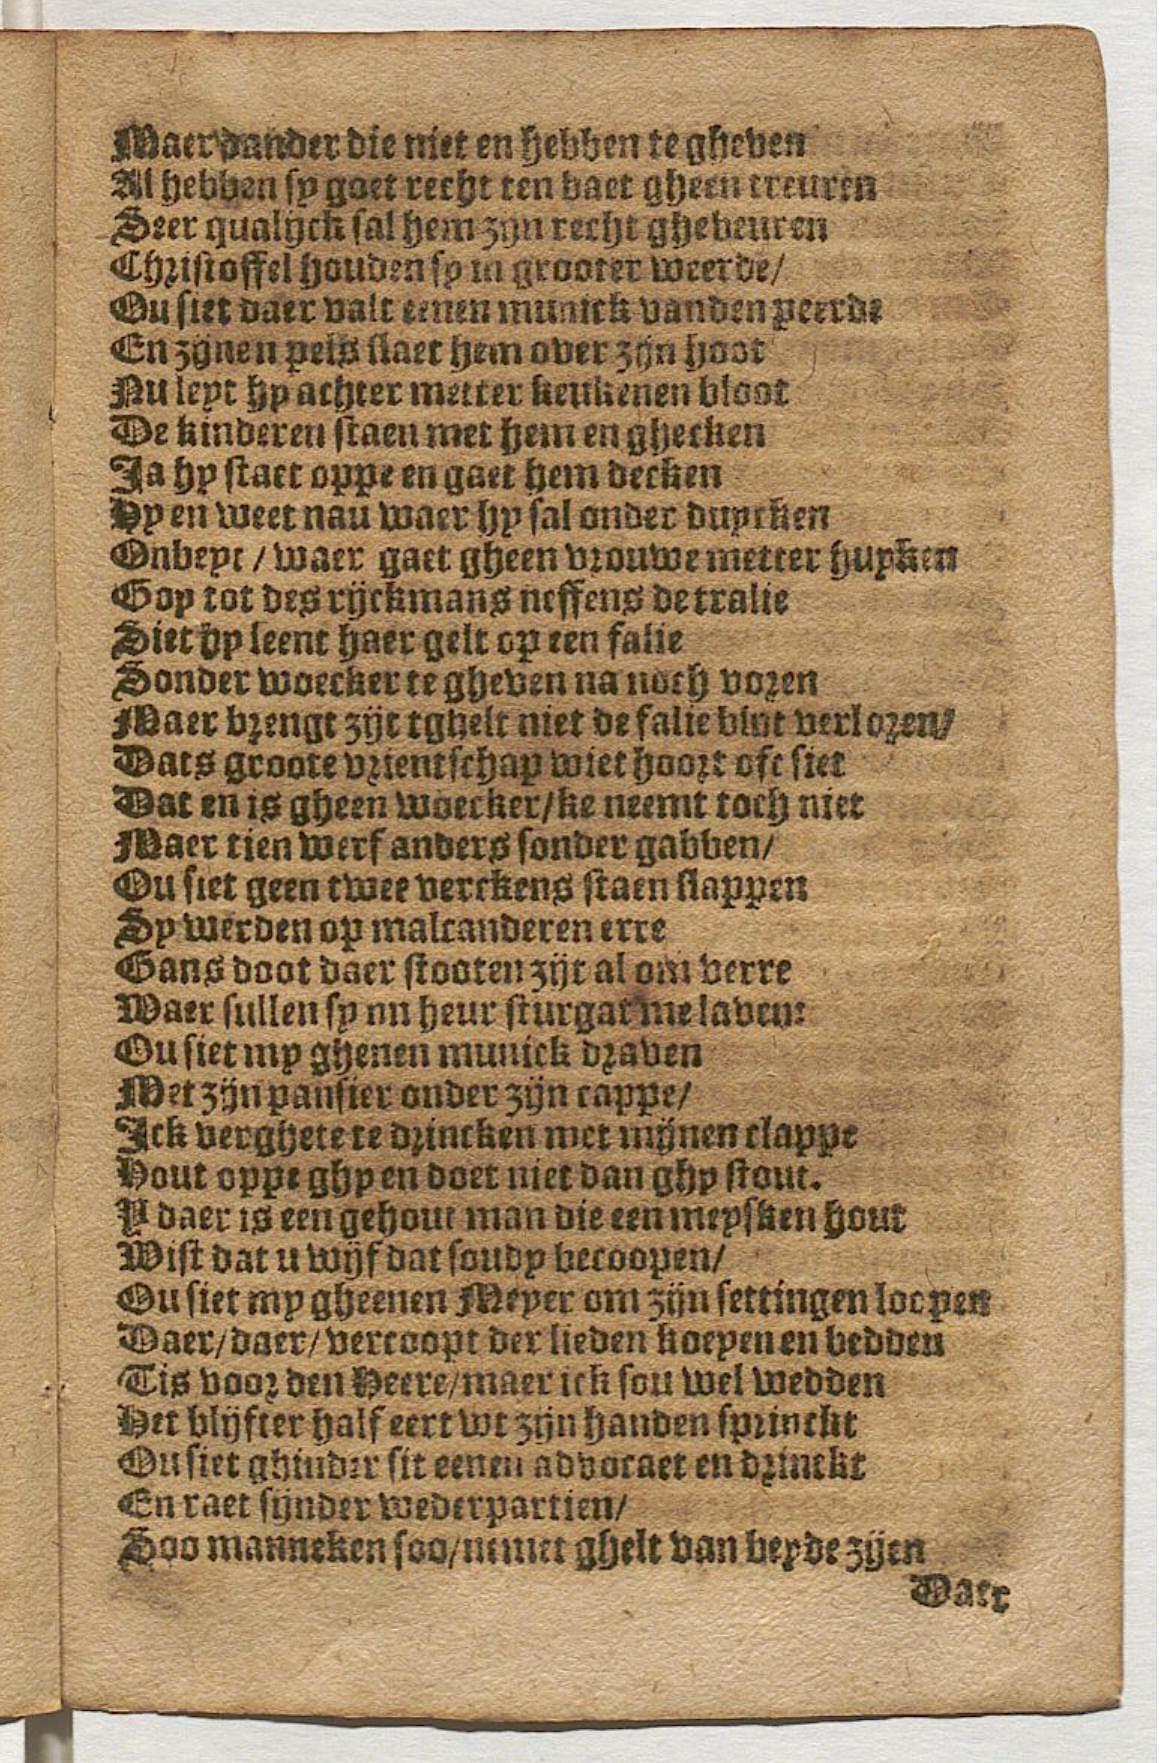 Maer dander die niet en hebben te gheven
Al hebben sy goet recht ten baet gheen treuren
Seer qualijck sal hem zijn recht ghebeuren
Christoffel houden sy in grooter weerde/
Ou siet daer valt eenen munick vanden peerde
En zijnen pels slaet hem over zijn hoot
Nu leyt hy achter metter keukenen bloot
De kinderen staen met hem en ghecken
Ja hy staet oppe en gaet hem decken
Hy en weet nau waer hy sal onder duycken
Onbeyt / waer gaet gheen vrouwe metter huyken
Gop tot des rijckmans neffens de tralie
Siet hy leent haer gelt op een falie
Sonder woecker te gheven na noch voren
Maer brengt zijt tghelt niet de falie blijt verloren/
Dats groote vrientschap wiet hoort oft siet
Dat en is gheen woecker/ke neemt toch niet
Maer tien werf anders sonder gabben/
Ou siet geen twee verckens staen slappen
Sy werden op malcanderen erre
Gans doot daer stooten zijt al om verre
Waer sullen sy nu heur sturgat me laven:
Ou siet my ghenen munick draven
Met zijn pansier onder zijn cappe/
Ick verghete te drincken met mijnen clappe
Hout oppe ghy en doet niet dan ghy stout.
Y daer is een gehout man die een meysken hout
Wist dat u wijf dat soudy becoopen/
Ou siet my gheenen Meyer om zijn settingen loopen
Daer/daer/vercoopt der lieden koeyen en bedden
Tis voor den Heere/maer ick sou wel wedden
Het blijfter half eert wt zijn handen sprinckt
Ou siet ghinder sit eenen advocaet en drinckt
En raet sijnder wederpartien/
Soo manneken soo/nemet ghelt van beyde zijen
Daer